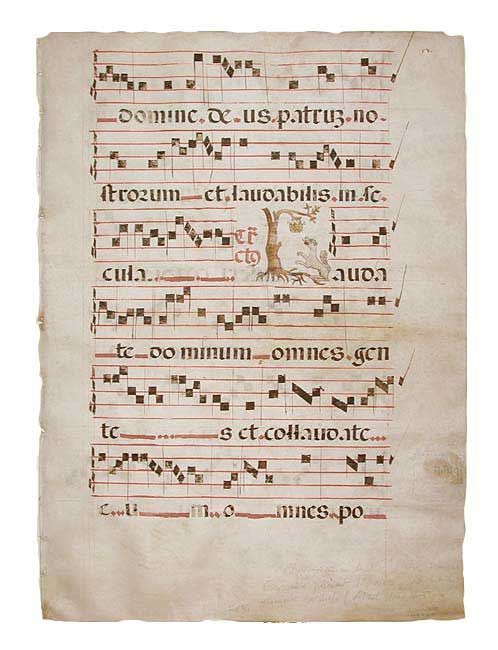 domine. de. us. patruz. no-
strorum et. laudabilis. in. se.
cula. Tr̄ ctꝰ Lauda
te. do minum omnes. gen
te s et. collaudate
e. u m. o mnes. po